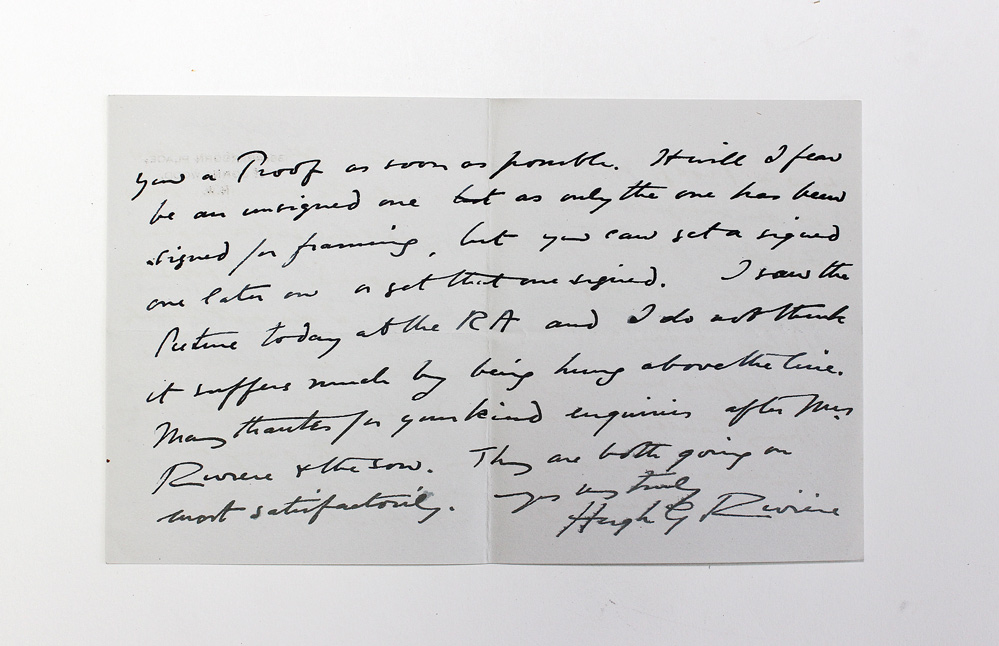 you a Proof as soon as possible. It will I fear
be an unsigned one but as only the one has been
signed for framing, but you can get a signed
one later on or get that one signed. I saw the
Picture today at the RA and I do not think
it suffers much by being hung above the line.
Many thanks for your kind enquiries after Mrs
Riviere & the son. They are both going on
most satisfactorily. yrs very truly
Hugh G Riviere